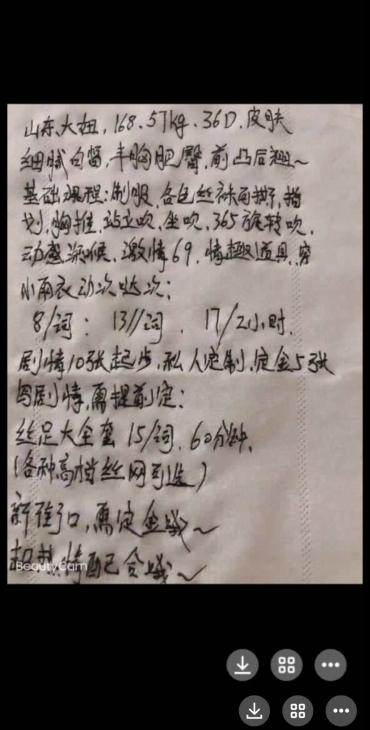 山东大妞，168.57kg.36D.皮肤
细腻白皙，丰胸肥臀，前凸后翘~
基础课程：制服，各色丝袜可撕，指
划，胸推，站立吹，坐吹，365旋转吹，
动感深喉，激情69，情趣道具，穿
小雨衣动次哒次；
8/词： 13//词． 17/2小时．
剧情10张起步，私人定制，定金5张
剧情，需提前定；
丝足大全套 15/词，60分钟，
（各种高档丝网可选）
需定金哦~
配合哦~
BeautyCam